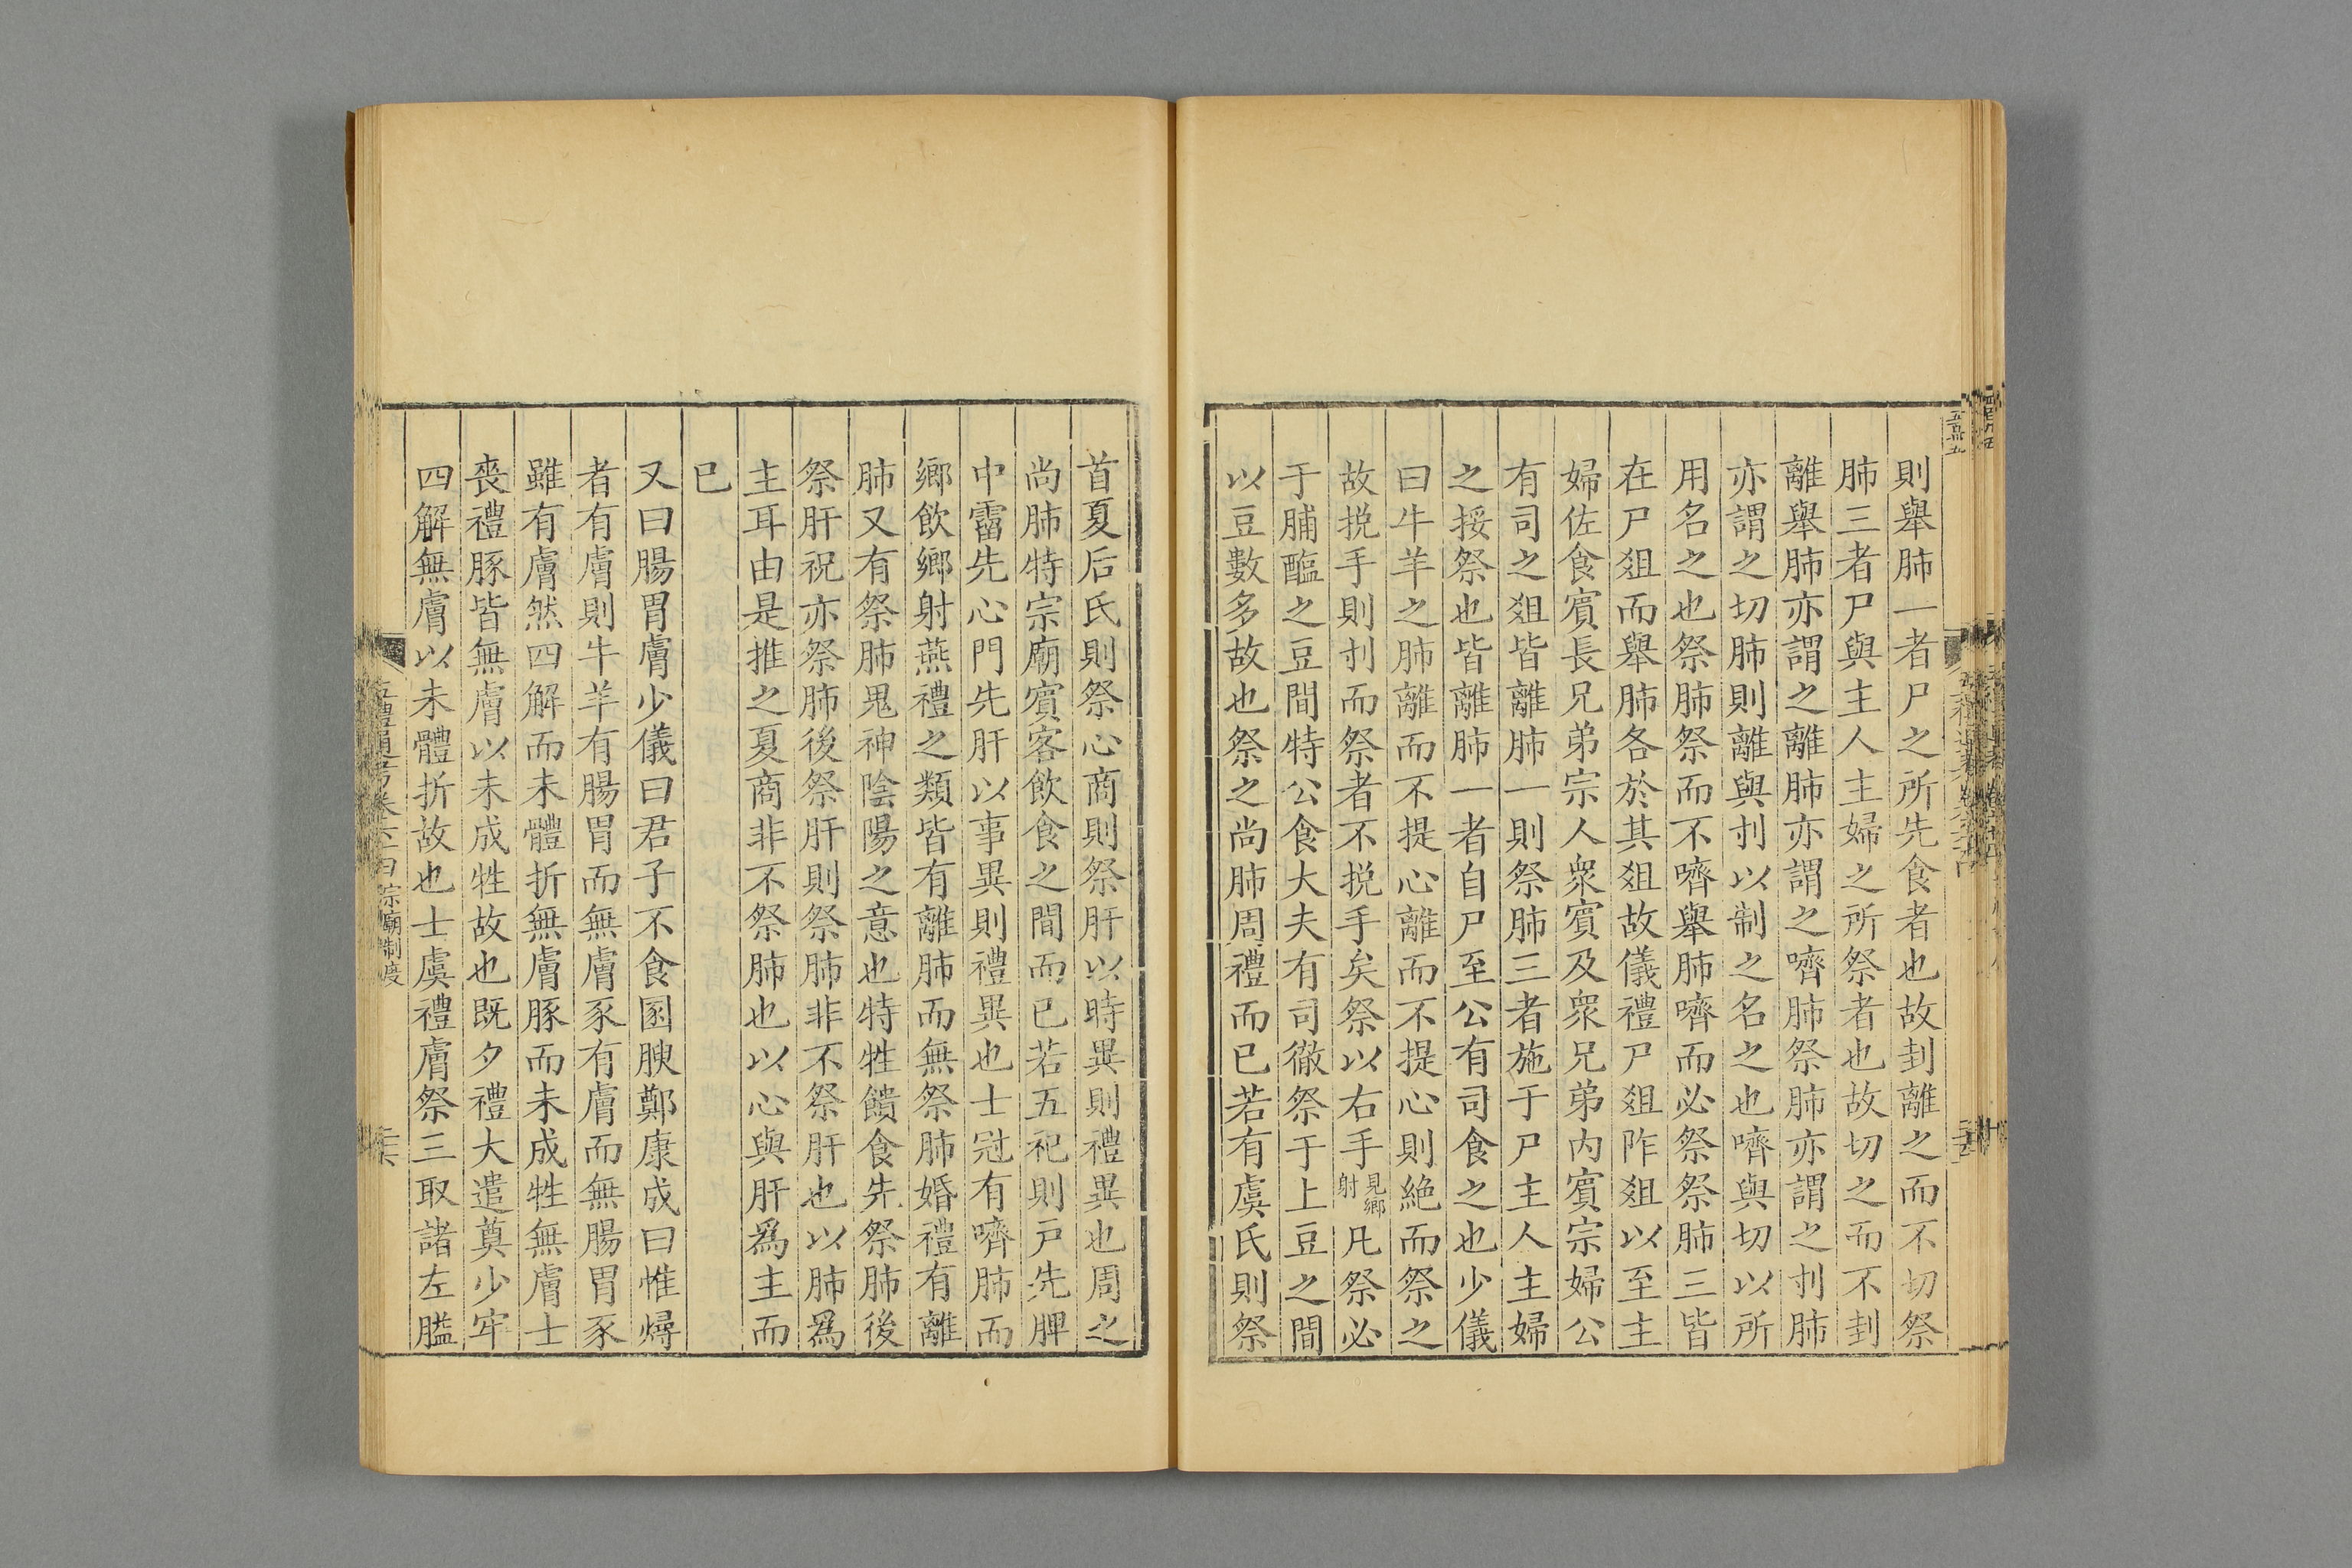 則舉肺一者尸之所先食者也故刲離之而不切祭
肺三者尸與主人主婦之所祭者也故切之而不刲
離舉肺亦謂之離肺亦謂之嚌肺祭肺亦謂之刌肺
亦謂之切肺則離與刌以制之名之也嚌與切以所
用名之也祭肺祭而不嚌舉肺嚌而必祭祭肺三皆
在尸俎而舉肺各於其俎故儀禮尸俎阼俎以至主
婦佐食賓長兄弟宗人衆賓及衆兄弟內賓宗婦公
有司之俎皆離肺一則祭肺三者施于尸主人主婦
之挼祭也皆離肺一者自尸至公有司食之也少儀
曰牛羊之肺離而不提心離而不提心則絕而祭之
故挩手則刌而祭者不挩手矣祭以右手見鄉射凡祭必
于脯醢之豆間特公食大夫有司徹祭于上豆之間
以豆數多故也祭之尚肺周禮而已若有虞氏則祭
首夏后氏則祭心商則祭肝以時異則禮異也周之
尚肺特宗廟賓客飲食之間而已若五祀則戸先脾
中霤先心門先肝以事異則禮異也士冠有嚌肺而
鄉飲鄉射燕禮之類皆有離肺而無祭肺婚禮有離
肺又有祭肺鬼神陰陽之意也特牲饋食先祭肺後
祭肝祝亦祭肺後祭肝則祭肺非不祭肝也以肺爲
主耳由是推之夏商非不祭肺也以心與肝爲主而
已
又曰腸胃膚少儀曰君子不食圂腴鄭康成曰惟燖
者有膚則牛羊有腸胃而無膚豕有膚而無腸胃豕
雖有膚然四解而未體折無膚豚而未成牲無膚士
喪禮豚皆無膚以未成牲故也既夕禮大遣奠少牢
四解無膚以未體折故也士虞禮膚祭三取諸左膉
五禮通考卷六十四宗廟制度